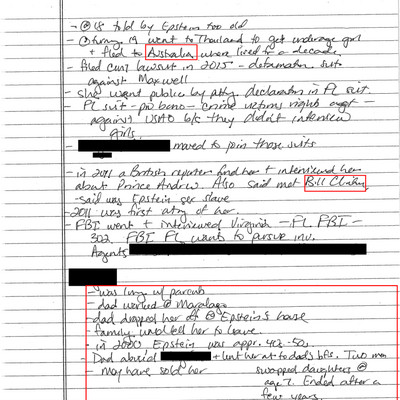 - @ 18 told by Epstein too old
- @ turning 19 went to Thailand to get underage girl
+ fled to Australia where lived for a decade.
- filed civil lawsuit in 2015 - defamation suit
against Maxwell
- she went public by atty declaration in FL suit.
- FL suit - pro bono - crime victims rights
against USAO b/c they didn't interview
girls.
- moved to join those suits
- in 2011 a British reporter find her + interviewed her
about Prince Andrew. Also said met Bill Clinton
- said was Epstein sex slave
- 2011 was first of her.
- FBI went + interviewed Virginia - FL FBI -
302. FBI FL wants to pursue inv.
Agents
- was living w/ parents
- dad worked @ Maralago
- dad dropped her off @ Epstein's house
- family would tell her to leave.
- in 2000 Epstein was appr. 40-50.
- Dad abused + lent her out to dad's bfs. Two men
- may have sold her swapped daughters @
age 7. Ended after a
few years.